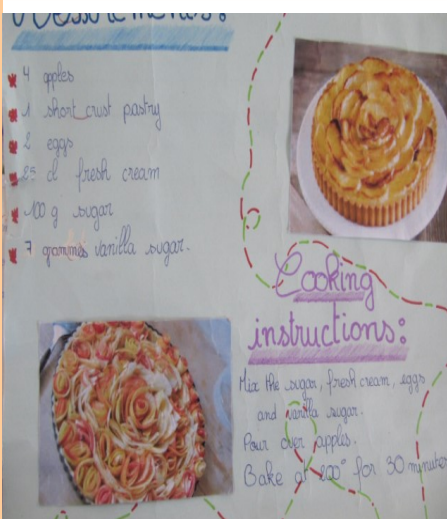 Measurements:
4 apples
1 short crust pastry
2 eggs
25 cl fresh cream
100 g sugar
7 grammes vanilla sugar.
Cooking
instructions:
Mix the sugar, fresh cream, eggs
and vanilla sugar.
Pour over apples.
Bake at 200° for 30 minutes